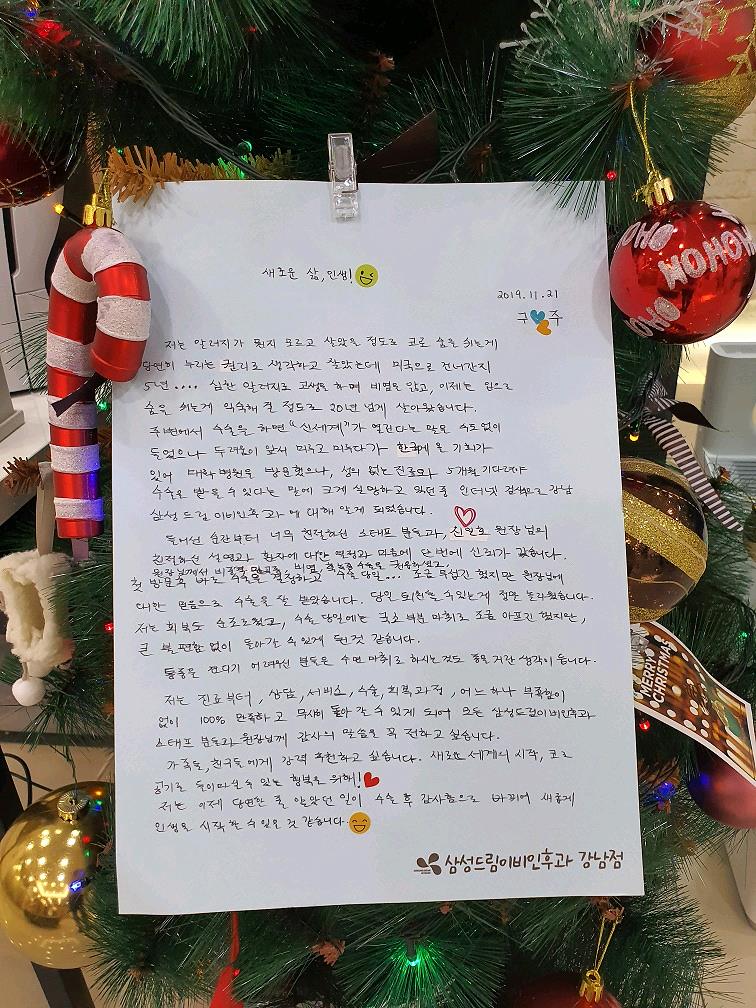 새로운 삶, 인생!
2019.11.21
구 주
저는 알러지가 뭔지 모르고 살았을 정도로 코로 숨을 쉬는게
당연히 누리는 권리로 생각하고 살았는데 미국으로 건너간지
5년.... 심한 알러지로 고생을 하며 비염을 앓고, 이제는 입으로
숨을 쉬는게 익숙해 질 정도로 20년 넘게 살아왔습니다.
주변에서 수술을 하면 "신세계"가 열린다는 말은 수도 없이
들었으나 두려움이 앞서 미루고 미루다가 한국에 올 기회가
있어 대학병원을 방문했으나, 성의 없는 진료와 5개월 기다려야
수술을 받을 수 있다는 말에 크게 실망하고 있던중 인터넷 검색으로 강남
삼성드림 이비인후과에 대해 알게 되었습니다.
들어선 순간부터 너무 친절하신 스태프 분들과, 원장님의
친절하신 설명과 환자에 대한 열정과 미소에 단번에 신뢰가 갔습니다.
원장님께서 비염, 수술을
첫 방문후 바로 수술을 결정하고 수술당일... 조금 무섭긴 했지만 원장님에
대한 믿음으로 수술을 잘 받았습니다. 당일 퇴원할 수 있는게 정말 놀라웠습니다.
저는 회복도 순조로웠고, 수술 당일에는 국소 부분 마취로 조금 아프긴 했지만,
큰 불편함 없이 돌아갈 수 있게 된것 같습니다.
통증을 견디기 어려우신 분들은 수면 마취로 하시는것도 좋을 거란 생각이 듭니다.
저는 진료부터, 상담, 서비스, 수술, 회복과정, 어느 하나 부족함이
없이 100% 만족하고 무사히 돌아 갈 수 있게 되어 모든 삼성드림이비인후과
스태프 분들과 원장님께 감사의 말씀을 꼭 전하고 싶습니다.
가족들, 친구들에게 강력 추천하고 싶습니다. 새로운 세계의 시작, 코로
공기를 들이마실 수 있는 행복을 위해!
저는 이제 당연한 줄 알았던 일이 수술 후 감사함으로 바뀌어 새롭게
인생을 시작 할 수 있을 것 같습니다.
삼성드림이비인후과 강남점
HOHO
HOHOHO
HOHO
MERRY
CHRISTMAS